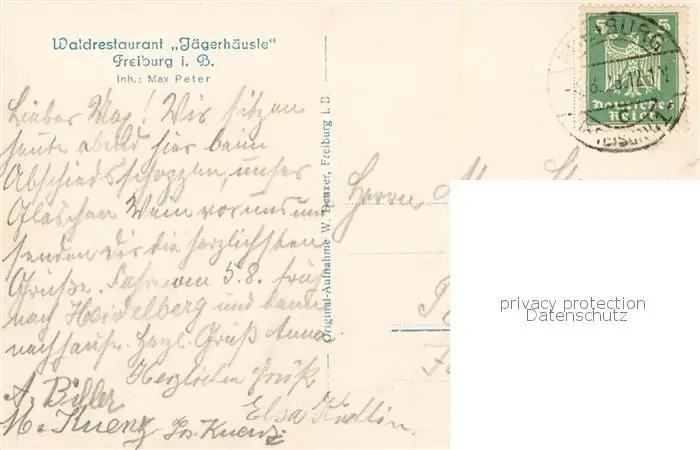 Waldrestaurant „Jägerhäusle"
Freiburg i. B.
Inh.: Max Peter
Lieber Max! Wir sitzen
heute abend hier beim
Abschiedsschoppen, unser
Gläschen Wein vor uns und
senden Dir die herzlichsten
Grüße. Fahre am 5.8. früh
nach Heidelberg und dann
nachhause. Herzl. Gruß Anna
Herzlichen Gruß
A. Biller
M. Kuenz Jos. Kuenz
Elsa
Original-Aufnahme W. Denzer, Freiburg i. B
FREIBURG
5 5
Deutsches
Reich
(BREISGAU)
Herrn
privacy protection
Datenschutz